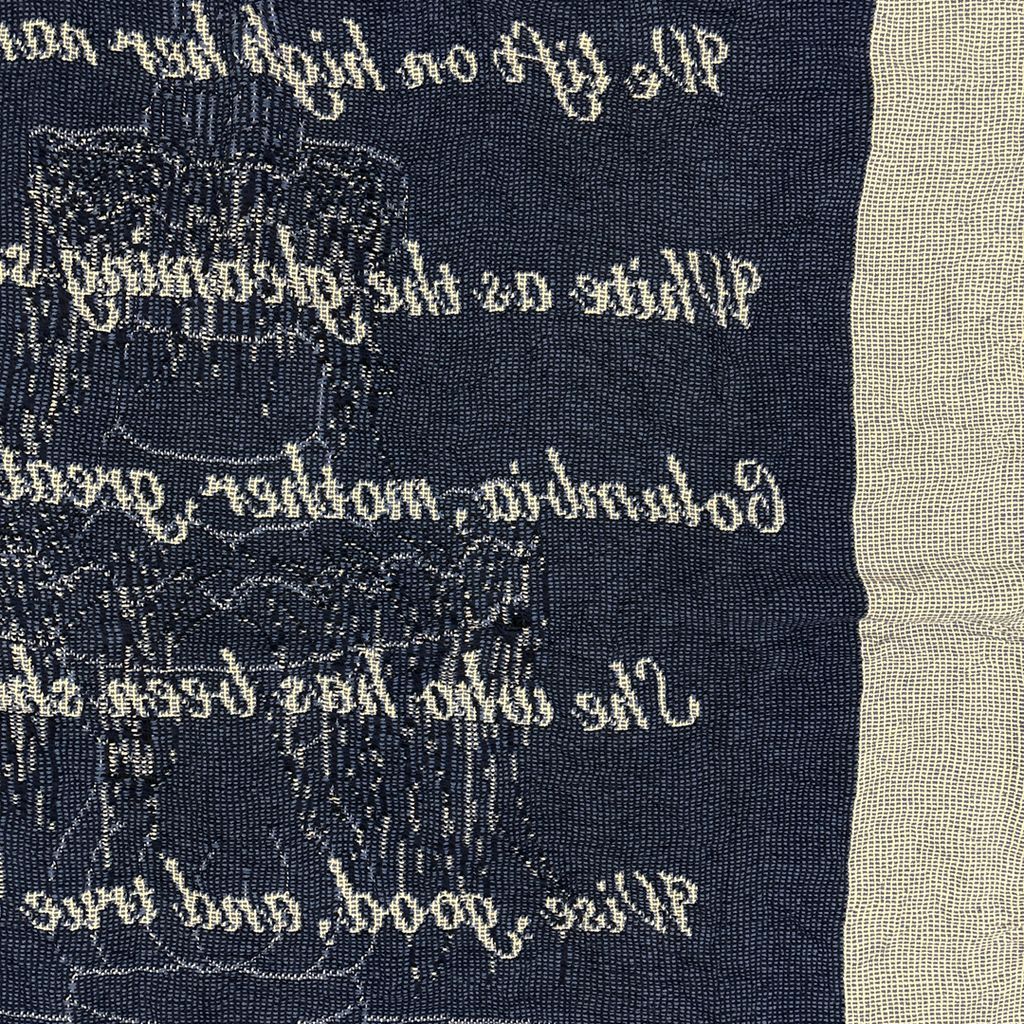 We lift on high her
White as the gleaming
Columbia, mother, great
She who has been
Wise, good, and true